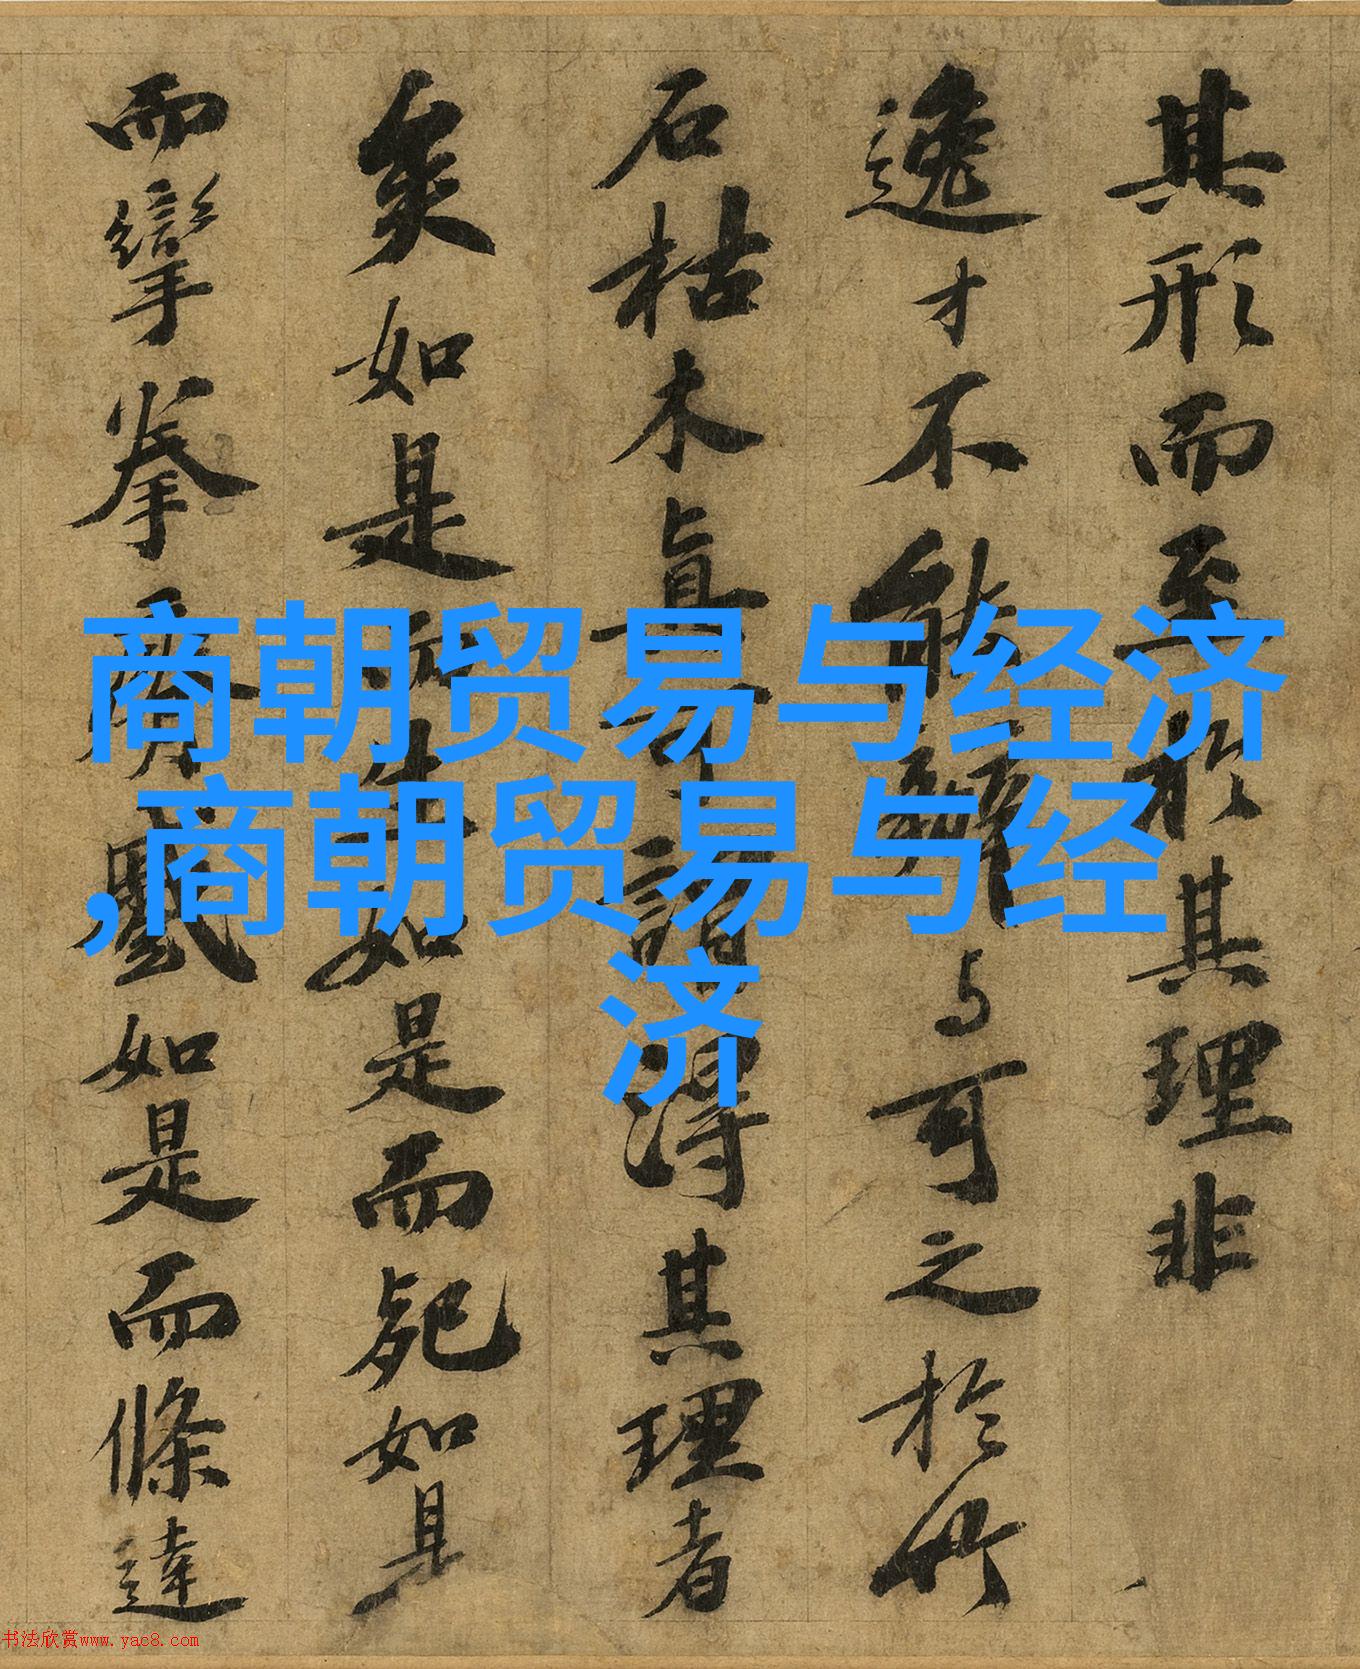 其形而至於其理非
逸才不能辨与可之於竹
石枯木真可謂得其理者
矣如是而生如是而死如是
而攣拳瘠蹙如是而條達
商朝贸易与经济
,商朝贸易与经
济
书法欣赏www.yac8.com